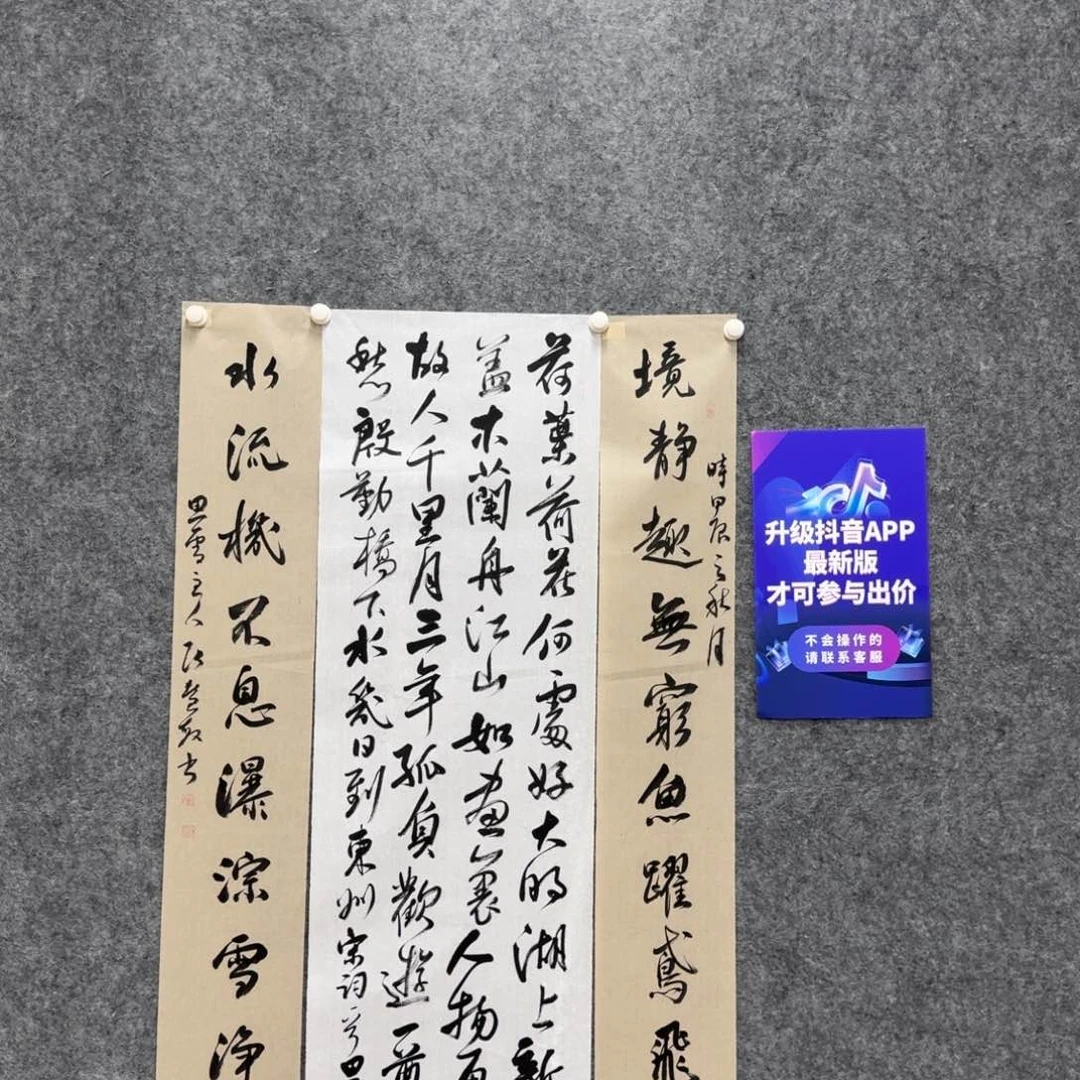 境靜趣無窮魚躍鳶飛
時甲辰之秋月
荷葉荷花何處好大明湖上新
蓋木蘭舟江山如畫裏人物更
故人千里月三年孤負歡遊一尊
愁殷勤橋下水幾日到東州宋詞一首
水流機不息瀑淙雪淨
思雪主人
升级抖音APP
最新版
才可参与出价
不会操作的
请联系客服